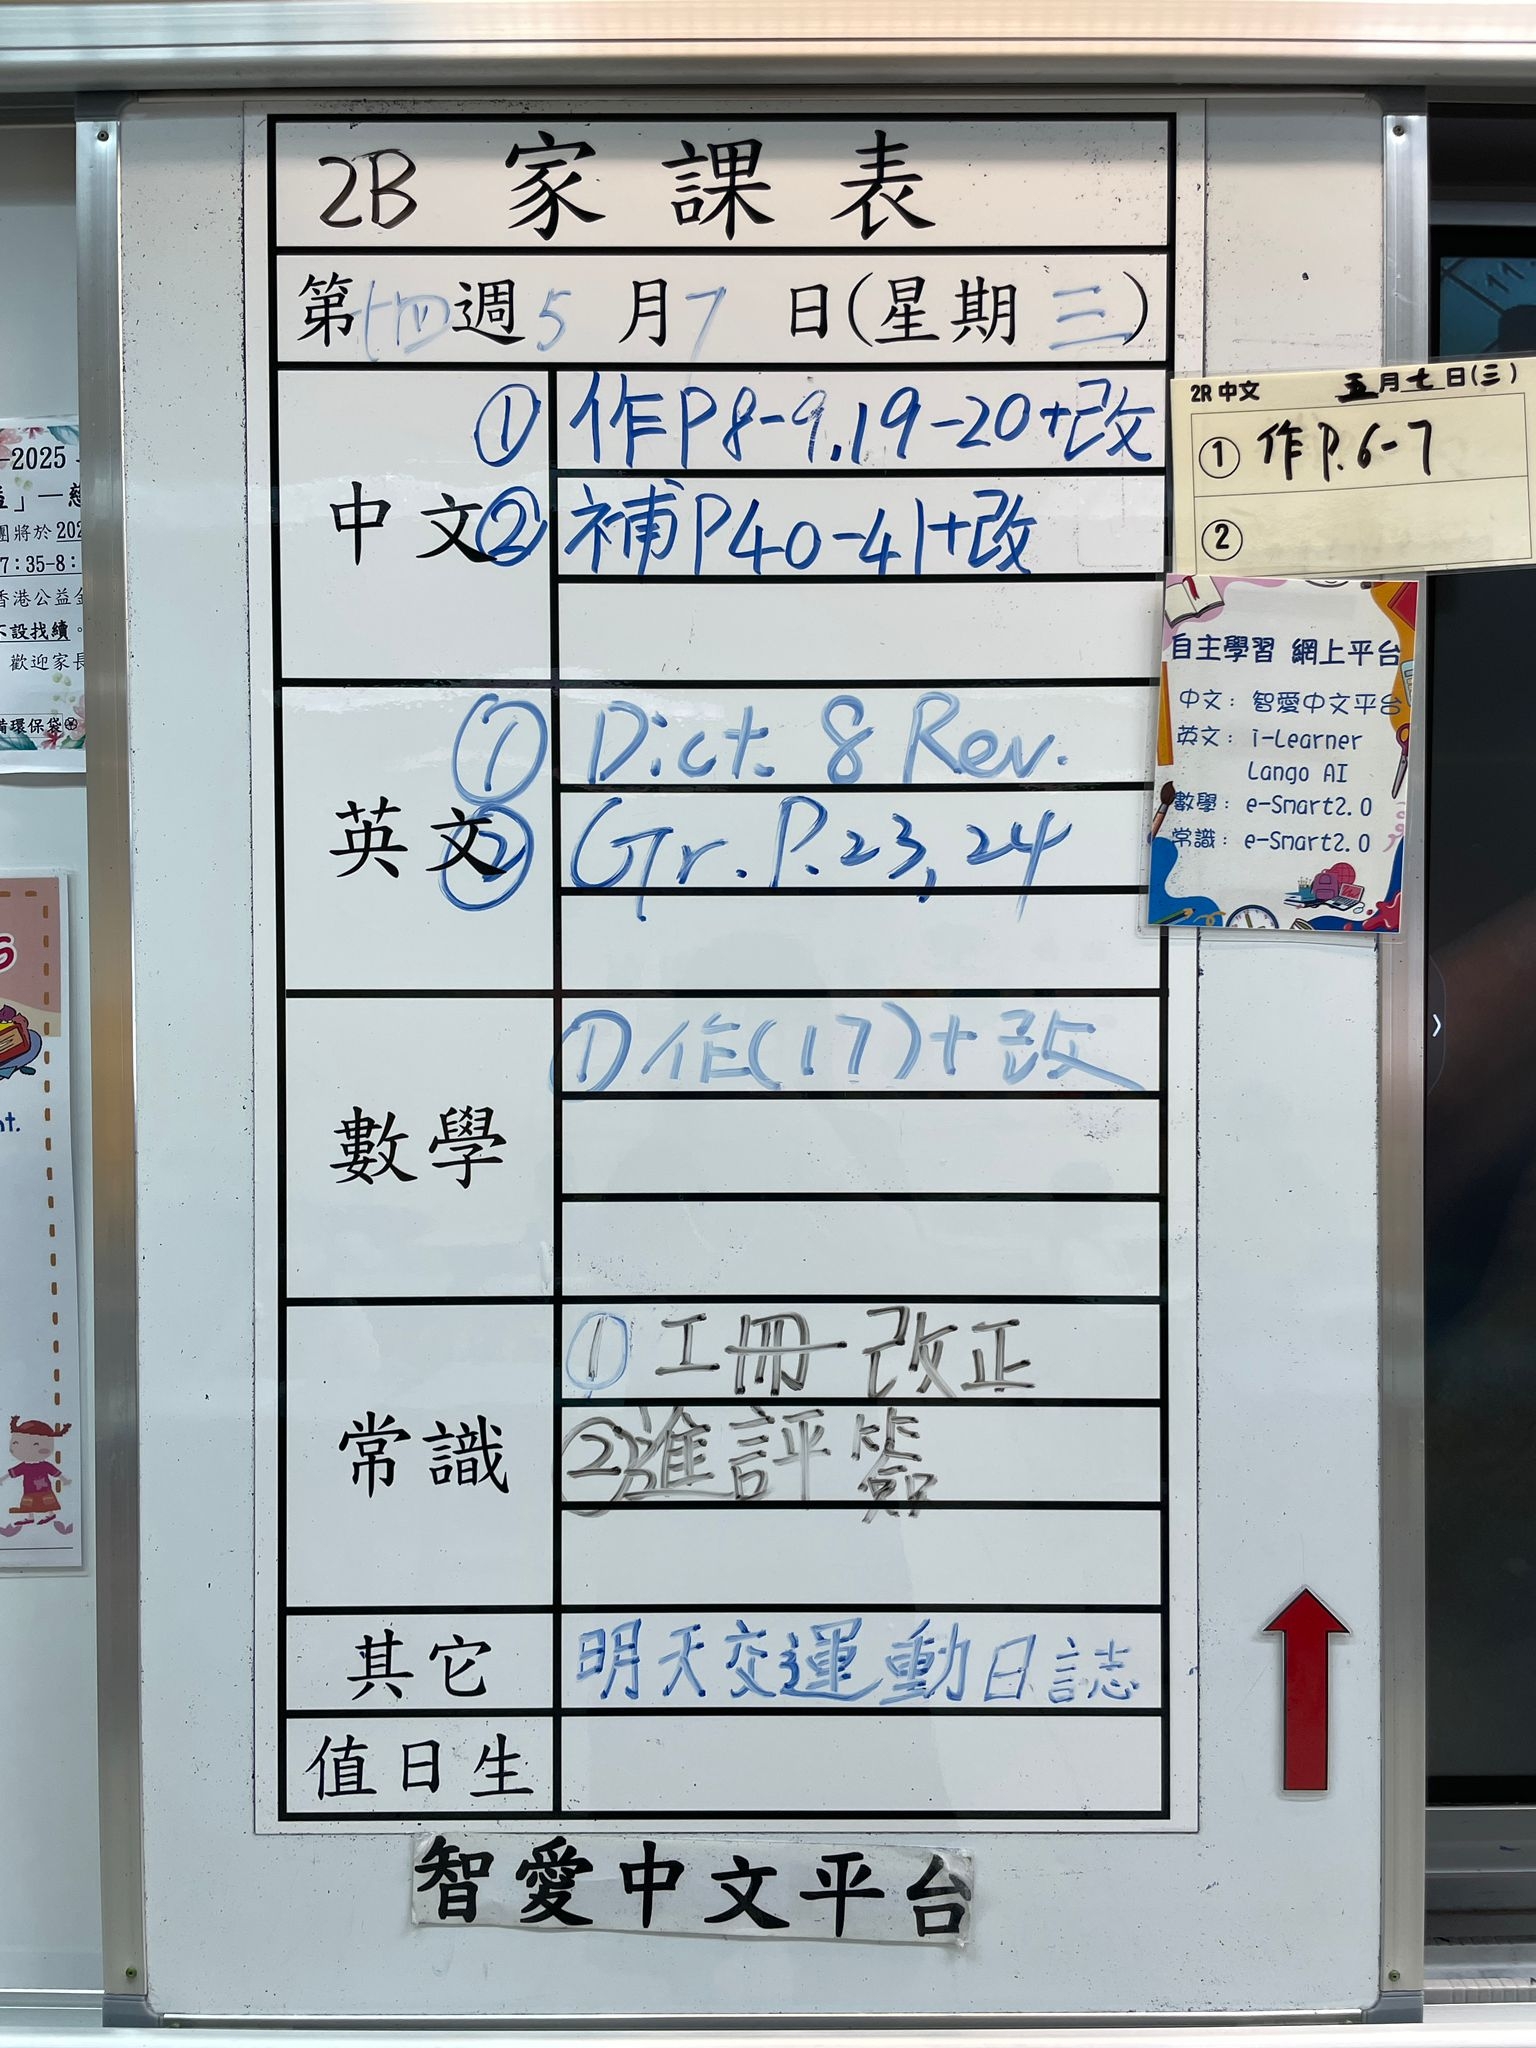 2B 家課表
第十四週5月7日(星期三)
中文
① 作P8-9,19-20+改
② 補P40-41+改
英文
① Dict. 8 Rev.
② Gr. P.23, 24
數學
① 作(17)+改
常識
① 工冊改正
② 進評簽
其它
明天交運動日誌
值日生
智愛中文平台
2R 中文 五月七日(三)
① 作P.6-7
②
自主學習 網上平台
中文: 智愛中文平台
英文: i-Learner
Lango AI
數學: e-Smart2.0
常識: e-Smart2.0
-2025
團將於 202
7:35-8:
香港公益金
不設找續。
歡迎家長
備環保袋